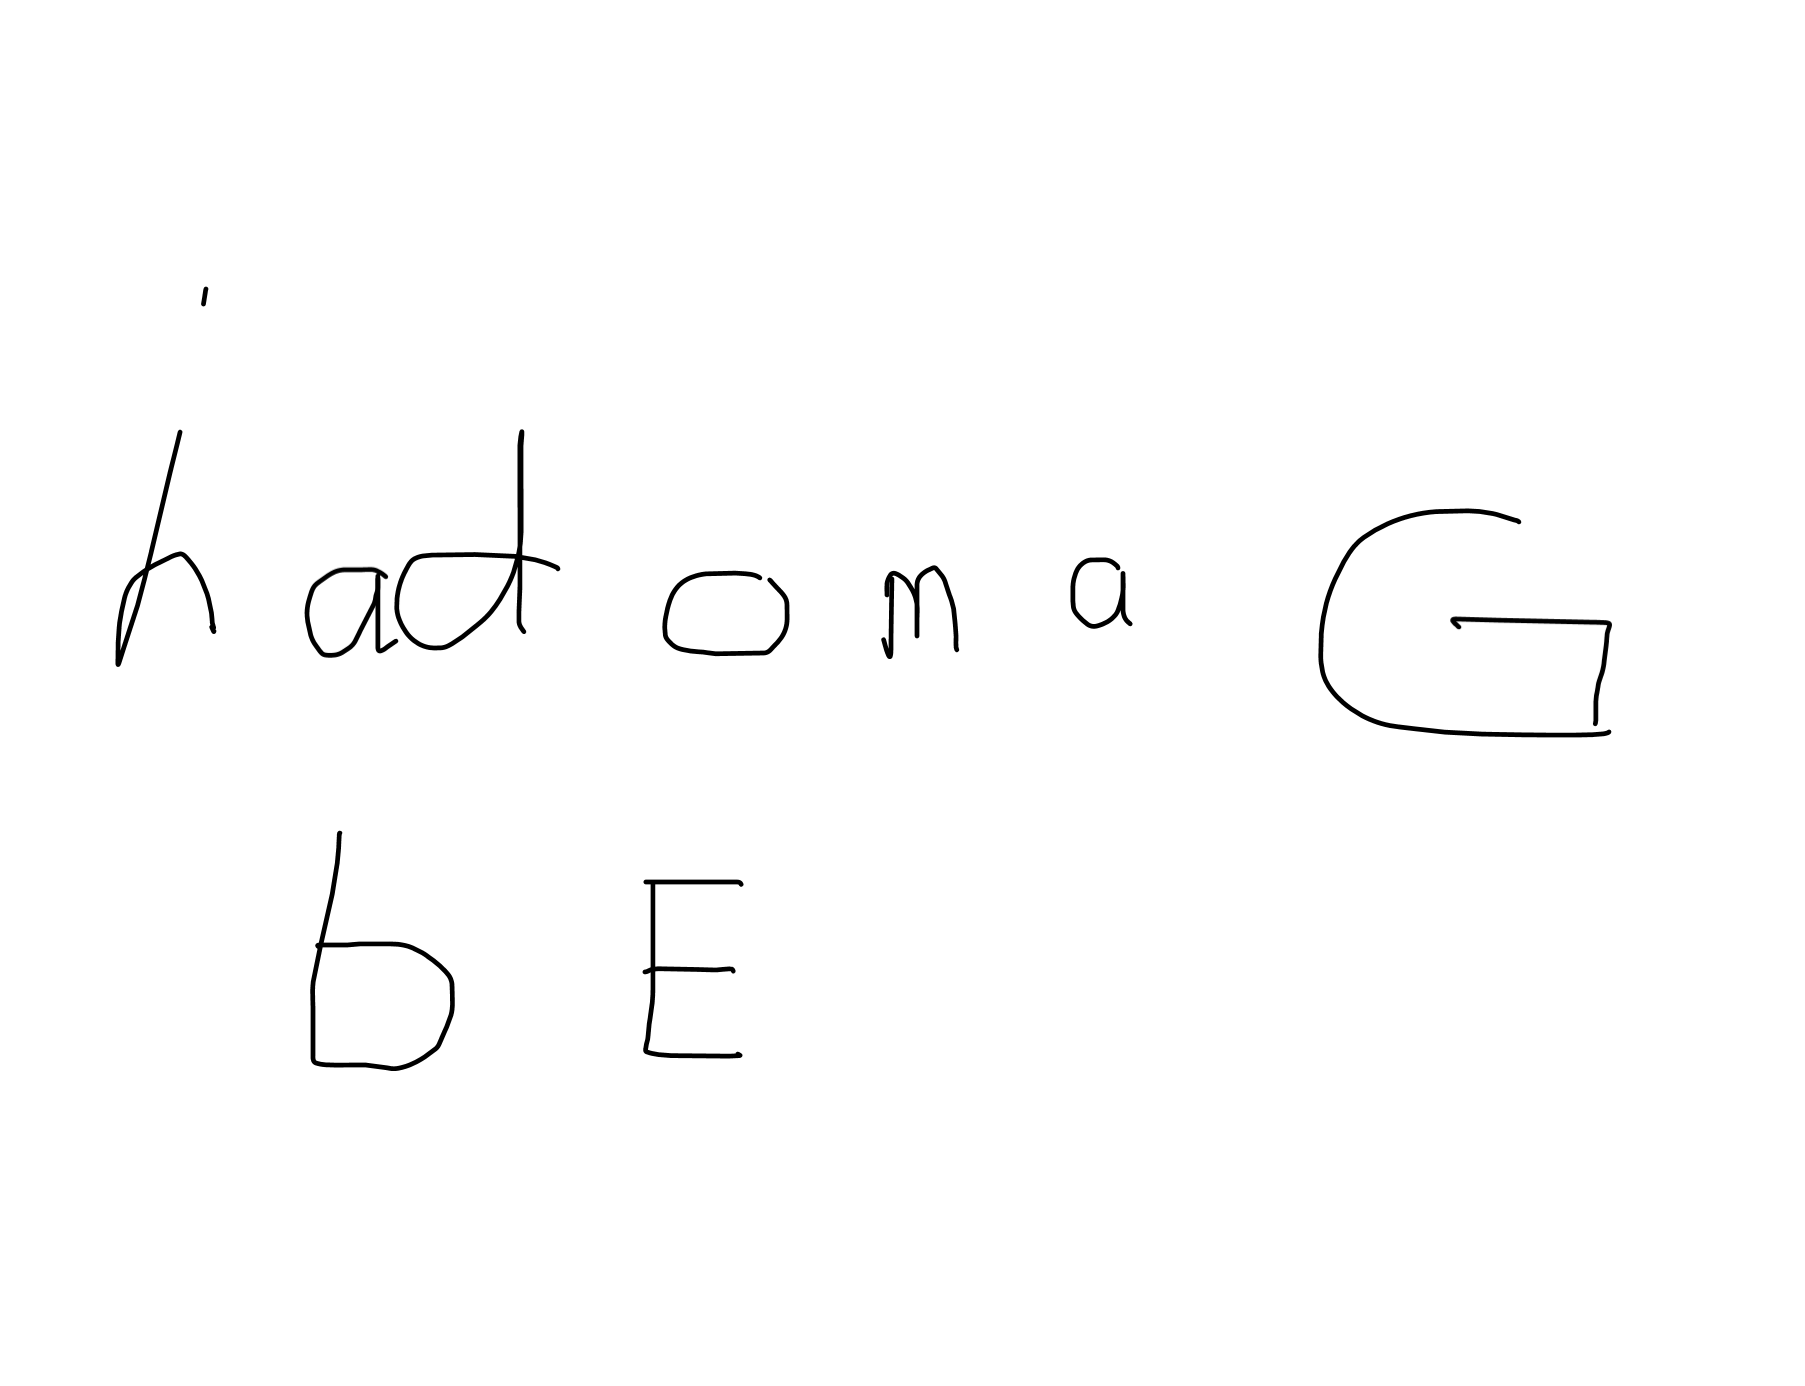 had o m a G
b E